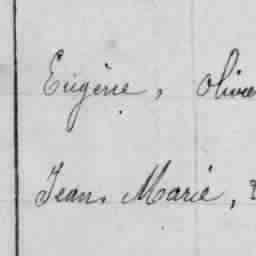 Eugène, Olive
Jean. Marie,